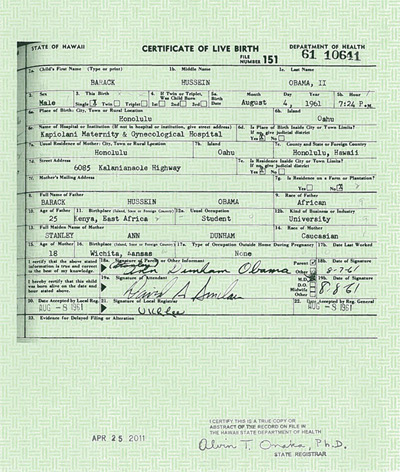 STATE OF HAWAII CERTIFICATE OF LIVE BIRTH DEPARTMENT OF HEALTH
FILE NUMBER 151 61 10641
1a. Child's First Name (Type or print) 1b. Middle Name 1c. Last Name
BARACK HUSSEIN OBAMA, II
2. Sex 3. This Birth 4. If Twin or Triplet, Was Child Born 5a. Birth Date Month Day Year 5b. Hour
Male Single Twin Triplet 1st 2nd 3rd August 4, 1961 7:24 P.M.
6a. Place of Birth: City, Town or Rural Location 6b. Island
Honolulu Oahu
6c. Name of Hospital or Institution (If not in hospital or institution, give street address) 6d. Is Place of Birth Inside City or Town Limits? If no, give judicial district
Kapiolani Maternity & Gynecological Hospital Yes X No
7a. Usual Residence of Mother: City, Town or Rural Location 7b. Island 7c. County and State or Foreign Country
Honolulu Oahu Honolulu, Hawaii
7d. Street Address 7e. Is Residence Inside City or Town Limits? If no, give judicial district
6085 Kalanianaole Highway Yes X No
7f. Mother's Mailing Address 7g. Is Residence on a Farm or Plantation?
Yes No X
8. Full Name of Father 9. Race of Father
BARACK HUSSEIN OBAMA African
10. Age of Father 11. Birthplace (Island, State or Foreign Country) 12a. Usual Occupation 12b. Kind of Business or Industry
25 Kenya, East Africa Student University
13. Full Maiden Name of Mother 14. Race of Mother
STANLEY ANN DUNHAM Caucasian
15. Age of Mother 16. Birthplace (Island, State or Foreign Country) 17a. Type of Occupation Outside Home During Pregnancy 17b. Date Last Worked
18 Wichita, Kansas None
I certify that the above stated information is true and correct to the best of my knowledge. 18a. Signature of Parent or Other Informant Parent Other 18b. Date of Signature
(Stanley) Ann Dunham Obama 8-7-61
I hereby certify that this child was born alive on the date and hour stated above. 19a. Signature of Attendant M.D. D.O. Midwife Other 19b. Date of Signature
David A Sinclair 8-8-61
20. Date Accepted by Local Reg. 21. Signature of Local Registrar 22. Date Accepted by Reg. General
AUG -8 1961 AUG -8 1961
23. Evidence for Delayed Filing or Alteration
APR 25 2011
I CERTIFY THIS IS A TRUE COPY OR
ABSTRACT OF THE RECORD ON FILE IN
THE HAWAII STATE DEPARTMENT OF HEALTH
Alvin T. Onaka, Ph.D.
STATE REGISTRAR